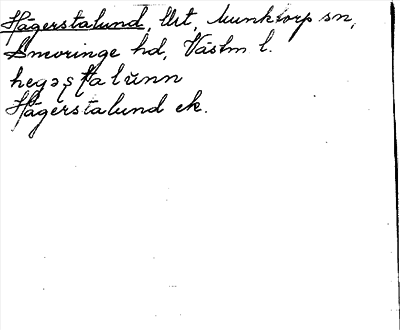 Hägerstalund, Ust, Munktorp sn,
Snevringe hd, Västm l.
hegəʂtalünn
Hägerstalund ek.